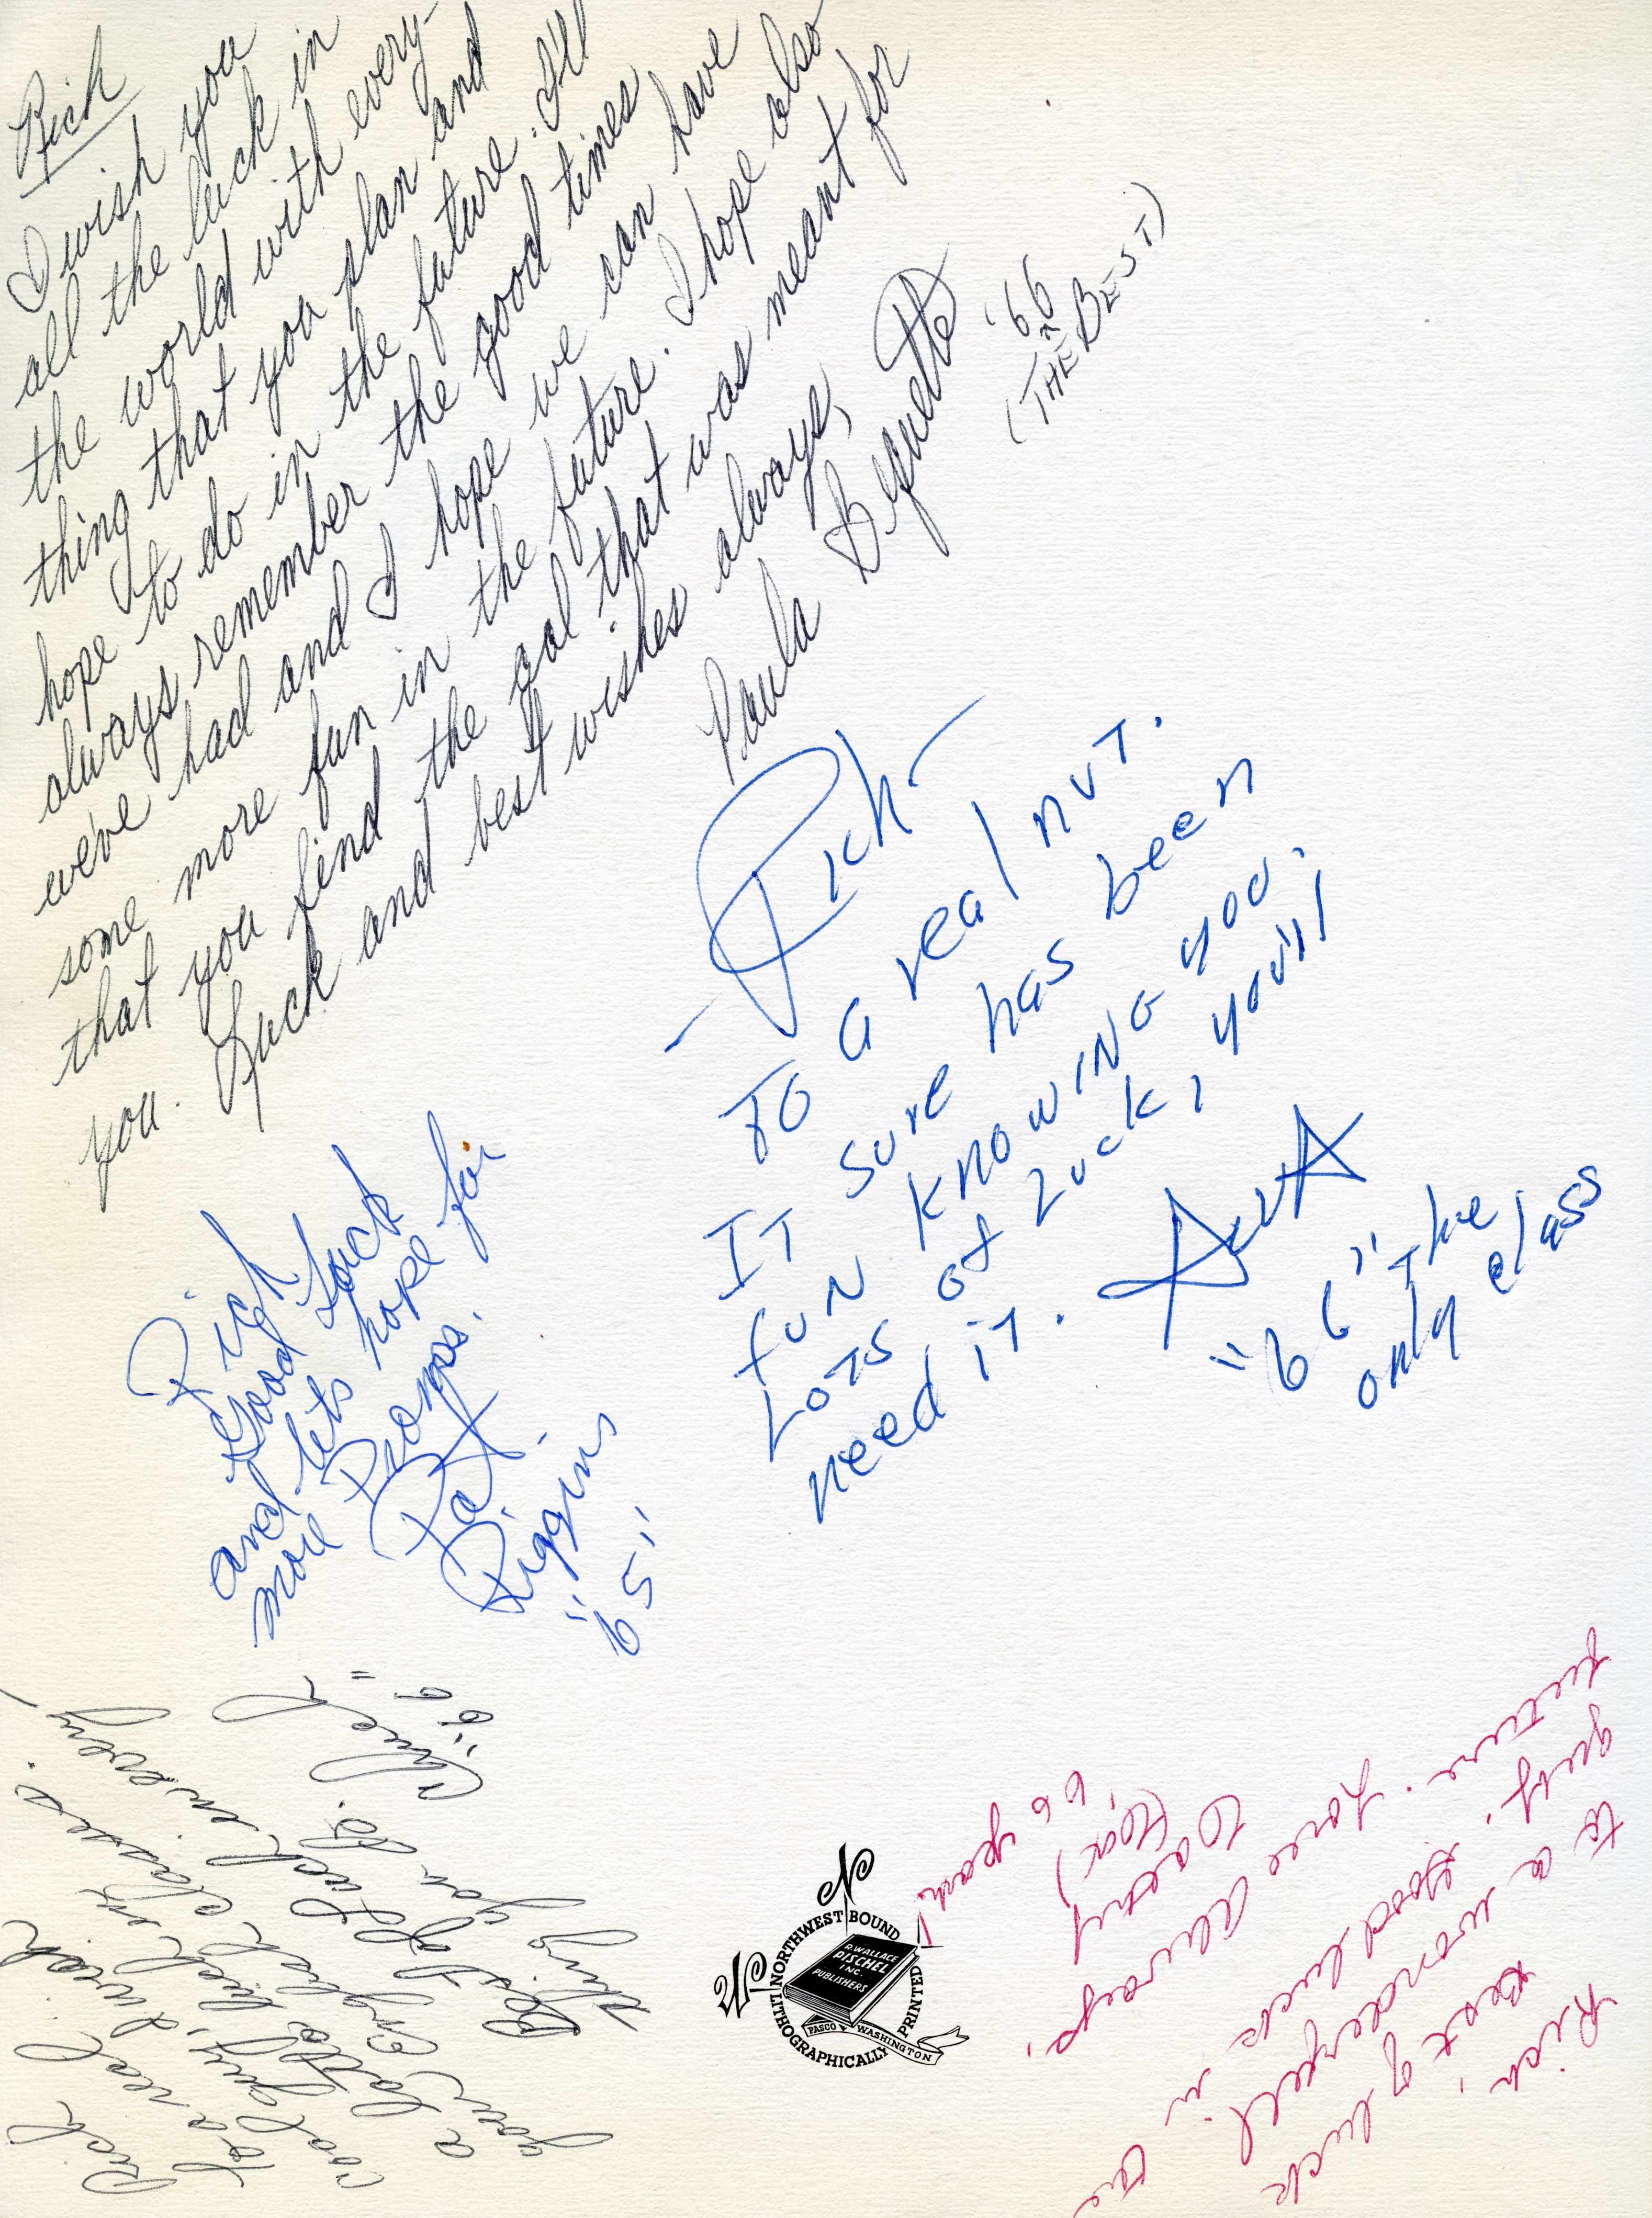 Rich
I wish you
all the luck in
the world with every-
thing that you plan and
hope to do in the future. I'll
always remember the good times
we've had and I hope we can have
some more fun in the future. I hope also
that you find the gal that was meant for
you. Luck and best wishes always,
Paula Biquette
'66
(THE BEST)
Rich-
To a real nut.
IT sure has been
fun knowing you.
Lots of Luck, you'll
need it.
"66" The
only class
Rich
Good Luck
and lets hope for
more
Pat
Riggins
"65'
Rich
To a real
cool guy, I wish
a lots luck in
your
Best of luck in every
thing you do.
Chuck
"66"
Rich,
Best of luck
to a wonderful
guy. Good luck in the
future. Love always,
Dorothy
'66
NORTHWEST BOUND
LITHOGRAPHICALLY PRINTED
R. WALLACE
PISCHEL
INC.
PUBLISHERS
PASCO WASHINGTON